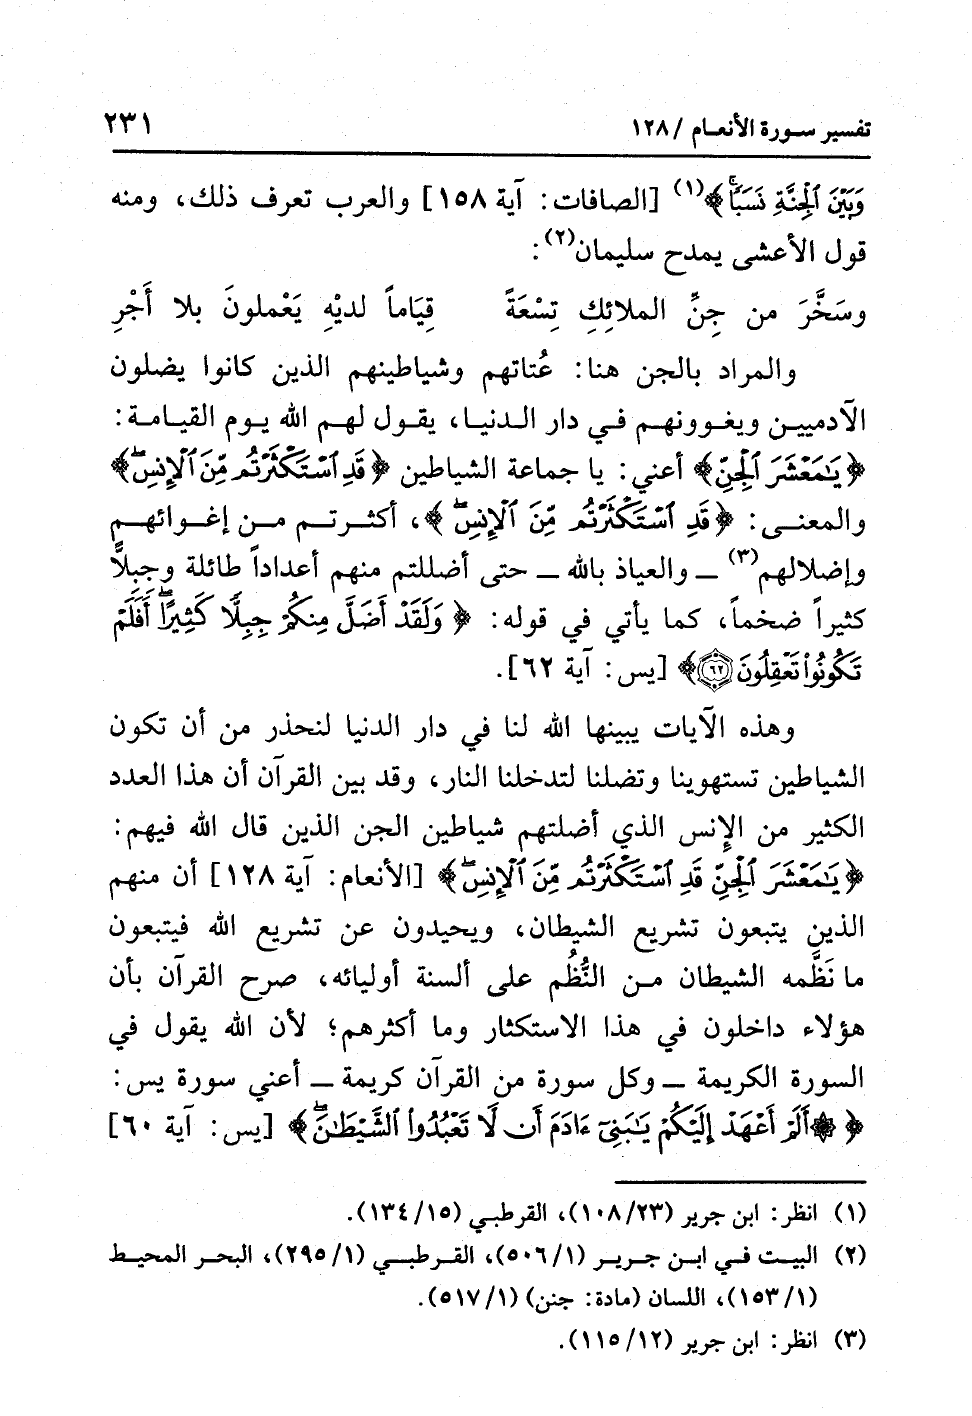 تفسير سورة الأنعام / ١٢٨
٢٣١
وَبَيْنَ ٱلْجِنَّةِ نَسَبًا ۚ﴾(١) [الصافات: آية ١٥٨] والعرب تعرف ذلك، ومنه
قول الأعشى يمدح سليمان(٢):
وسَخَّرَ من جِنِّ الملائِكِ تِسْعَةً قِيَاماً لديْهِ يَعْملونَ بلا أَجْرِ
والمراد بالجن هنا: عُتاتهم وشياطينهم الذين كانوا يضلون
الآدميين ويغوونهم في دار الدنيا، يقول لهم الله يوم القيامة:
﴿يَٰمَعْشَرَ ٱلْجِنِّ﴾ أعني: يا جماعة الشياطين ﴿قَدِ ٱسْتَكْثَرْتُم مِّنَ ٱلْإِنسِ ۖ﴾
والمعنى: ﴿قَدِ ٱسْتَكْثَرْتُم مِّنَ ٱلْإِنسِ ۖ﴾، أكثرتم من إغوائهم
وإضلالهم(٣) ــ والعياذ بالله ــ حتى أضللتم منهم أعداداً طائلة وجِبِلاًّ
كثيراً ضخماً، كما يأتي في قوله: ﴿وَلَقَدْ أَضَلَّ مِنكُمْ جِبِلًّا كَثِيرًا ۖ أَفَلَمْ
تَكُونُوا۟ تَعْقِلُونَ ٦٢﴾ [يس: آية ٦٢].
وهذه الآيات يبينها الله لنا في دار الدنيا لنحذر من أن تكون
الشياطين تستهوينا وتضلنا لتدخلنا النار، وقد بين القرآن أن هذا العدد
الكثير من الإنس الذي أضلتهم شياطين الجن الذين قال الله فيهم:
﴿يَٰمَعْشَرَ ٱلْجِنِّ قَدِ ٱسْتَكْثَرْتُم مِّنَ ٱلْإِنسِ ۖ﴾ [الأنعام: آية ١٢٨] أن منهم
الذين يتبعون تشريع الشيطان، ويحيدون عن تشريع الله فيتبعون
ما نَظَّمه الشيطان من النُّظُم على ألسنة أوليائه، صرح القرآن بأن
هؤلاء داخلون في هذا الاستكثار وما أكثرهم؛ لأن الله يقول في
السورة الكريمة ــ وكل سورة من القرآن كريمة ــ أعني سورة يس:
﴿۞ أَلَمْ أَعْهَدْ إِلَيْكُمْ يَٰبَنِىٓ ءَادَمَ أَن لَّا تَعْبُدُوا۟ ٱلشَّيْطَٰنَ ۖ﴾ [يس: آية ٦٠]
(١) انظر: ابن جرير (١٠٨/٢٣)، القرطبي (١٣٤/١٥).
(٢) البيت في ابن جرير (٥٠٦/١)، القرطبي (٢٩٥/١)، البحر المحيط
(١٥٣/١)، اللسان (مادة: جنن) (٥١٧/١).
(٣) انظر: ابن جرير (١١٥/١٢).